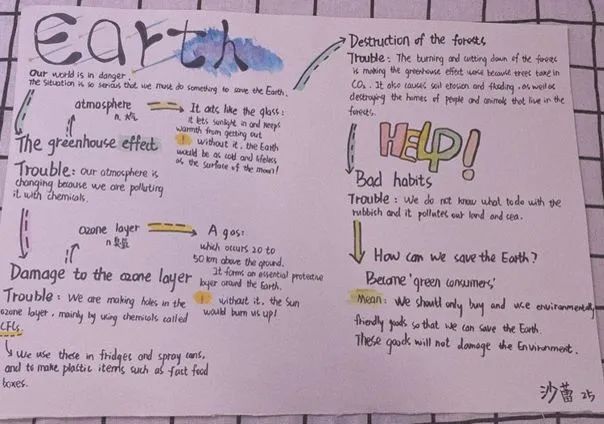 Earth
Our world is in danger.
The situation is so serious that we must do something to save the Earth.
atmosphere
n. 大气
It acts like the glass:
it lets sunlight in and keeps
warmth from getting out
! without it, the Earth
would be as cold and lifeless
as the surface of the moon!
The greenhouse effect
Trouble: Our atmosphere is
changing because we are polluting
it with chemicals.
ozone layer
n 臭氧
A gas:
which occurs 20 to
50 km above the ground.
It forms an essential protective
layer around the Earth.
! without it, the Sun
would burn us up!
Damage to the ozone layer
Trouble: We are making holes in the
ozone layer, mainly by using chemicals called
CFCs.
We use these in fridges and spray cans,
and to make plastic items such as fast food
boxes.
Destruction of the forests
Trouble: The burning and cutting down of the forests
is making the greenhouse effect worse because trees take in
CO₂. It also causes soil erosion and flooding, as well as
destroying the homes of people and animals that live in the
forests.
HELP!
Bad habits
Trouble: We do not know what to do with the
rubbish and it pollutes our land and sea.
How can we save the Earth?
Become 'green consumers'
Mean: We should only buy and use environmentally
friendly goods so that we can save the Earth.
These goods will not damage the Environment.
沙蕾 25